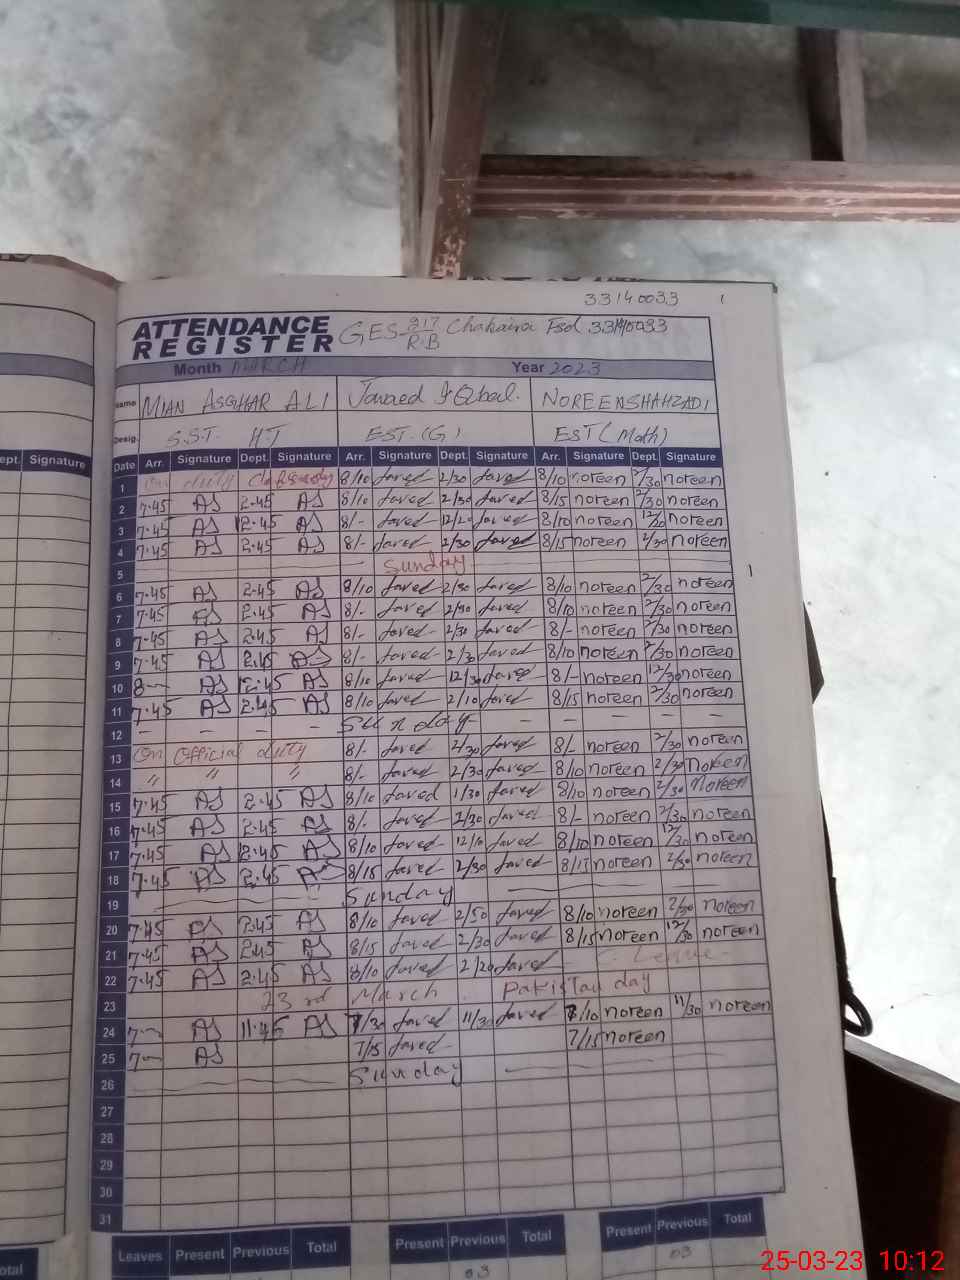 33140033
ATTENDANCE REGISTER GES 217 R.B Chakaira Fsd 33140033
Month MARCH Year 2023
Name MIAN ASGHAR ALI Javaed Iqbal. NOREEN SHAHZADI
Desig. S.S.T. H.T EST.(G) EST (Math)
Dept. Signature
Date Arr. Signature Dept. Signature Arr. Signature Dept. Signature Arr. Signature Dept. Signature
1 On duty 8/10 Javed 2/30 Javed 8/10 noreen 2/30 noreen
2 7.45 AS 2.45 AS 8/10 Javed 2/30 Javed 8/15 noreen 2/30 noreen
3 7.45 AS 12.45 AS 8/- Javed 12/20 Javed 8/10 noreen 12/30 noreen
4 7.45 AS 2.45 AS 8/- Javed 2/30 Javed 8/15 noreen 2/30 noreen
5 Sunday
6 7.45 AS 2.45 AS 8/10 Javed 2/30 Javed 8/10 noreen 2/30 noreen
7 7.45 AS 2.45 AS 8/- Javed 2/30 Javed 8/10 noreen 2/30 noreen
8 7.45 AS 2.45 AS 8/- Javed 2/30 Javed 8/- noreen 2/30 noreen
9 7.45 AS 2.45 AS 8/- Javed 2/30 Javed 8/10 noreen 2/30 noreen
10 8- AS 12.45 AS 8/10 Javed 12/30 Javed 8/- noreen 12/30 noreen
11 7.45 AS 2.45 AS 8/10 Javed 2/10 Javed 8/15 noreen 2/30 noreen
12 - - - - Sunday - - - - -
13 On Official duty 8/- Javed 2/30 Javed 8/- noreen 2/30 noreen
14 " " " 8/- Javed 2/30 Javed 8/10 noreen 2/30 noreen
15 7.45 AS 2.45 AS 8/10 Javed 1/30 Javed 8/10 noreen 2/30 noreen
16 7.45 AS 2.45 AS 8/- Javed 2/30 Javed 8/- noreen 2/30 noreen
17 7.45 AS 12.45 AS 8/10 Javed 12/10 Javed 8/10 noreen 12/30 noreen
18 7.45 AS 2.45 AS 8/15 Javed 2/30 Javed 8/15 noreen 2/30 noreen
19 Sunday
20 7.45 AS 2.45 AS 8/10 Javed 2/50 Javed 8/10 noreen 2/30 noreen
21 7.45 AS 2.45 AS 8/15 Javed 2/30 Javed 8/15 noreen 12/30 noreen
22 7.45 AS 2.45 AS 8/10 Javed 2/20 Javed C. Leave
23 23 rd March. Pakistan day
24 7- AS 11.45 AS 7/30 Javed 11/30 Javed 7/10 noreen 11/30 noreen
25 7- AS 7/15 Javed 7/15 noreen
26 Sunday
27
28
29
30
31
Leaves Present Previous Total Present Previous Total Present Previous Total
03 03
25-03-23 10:12